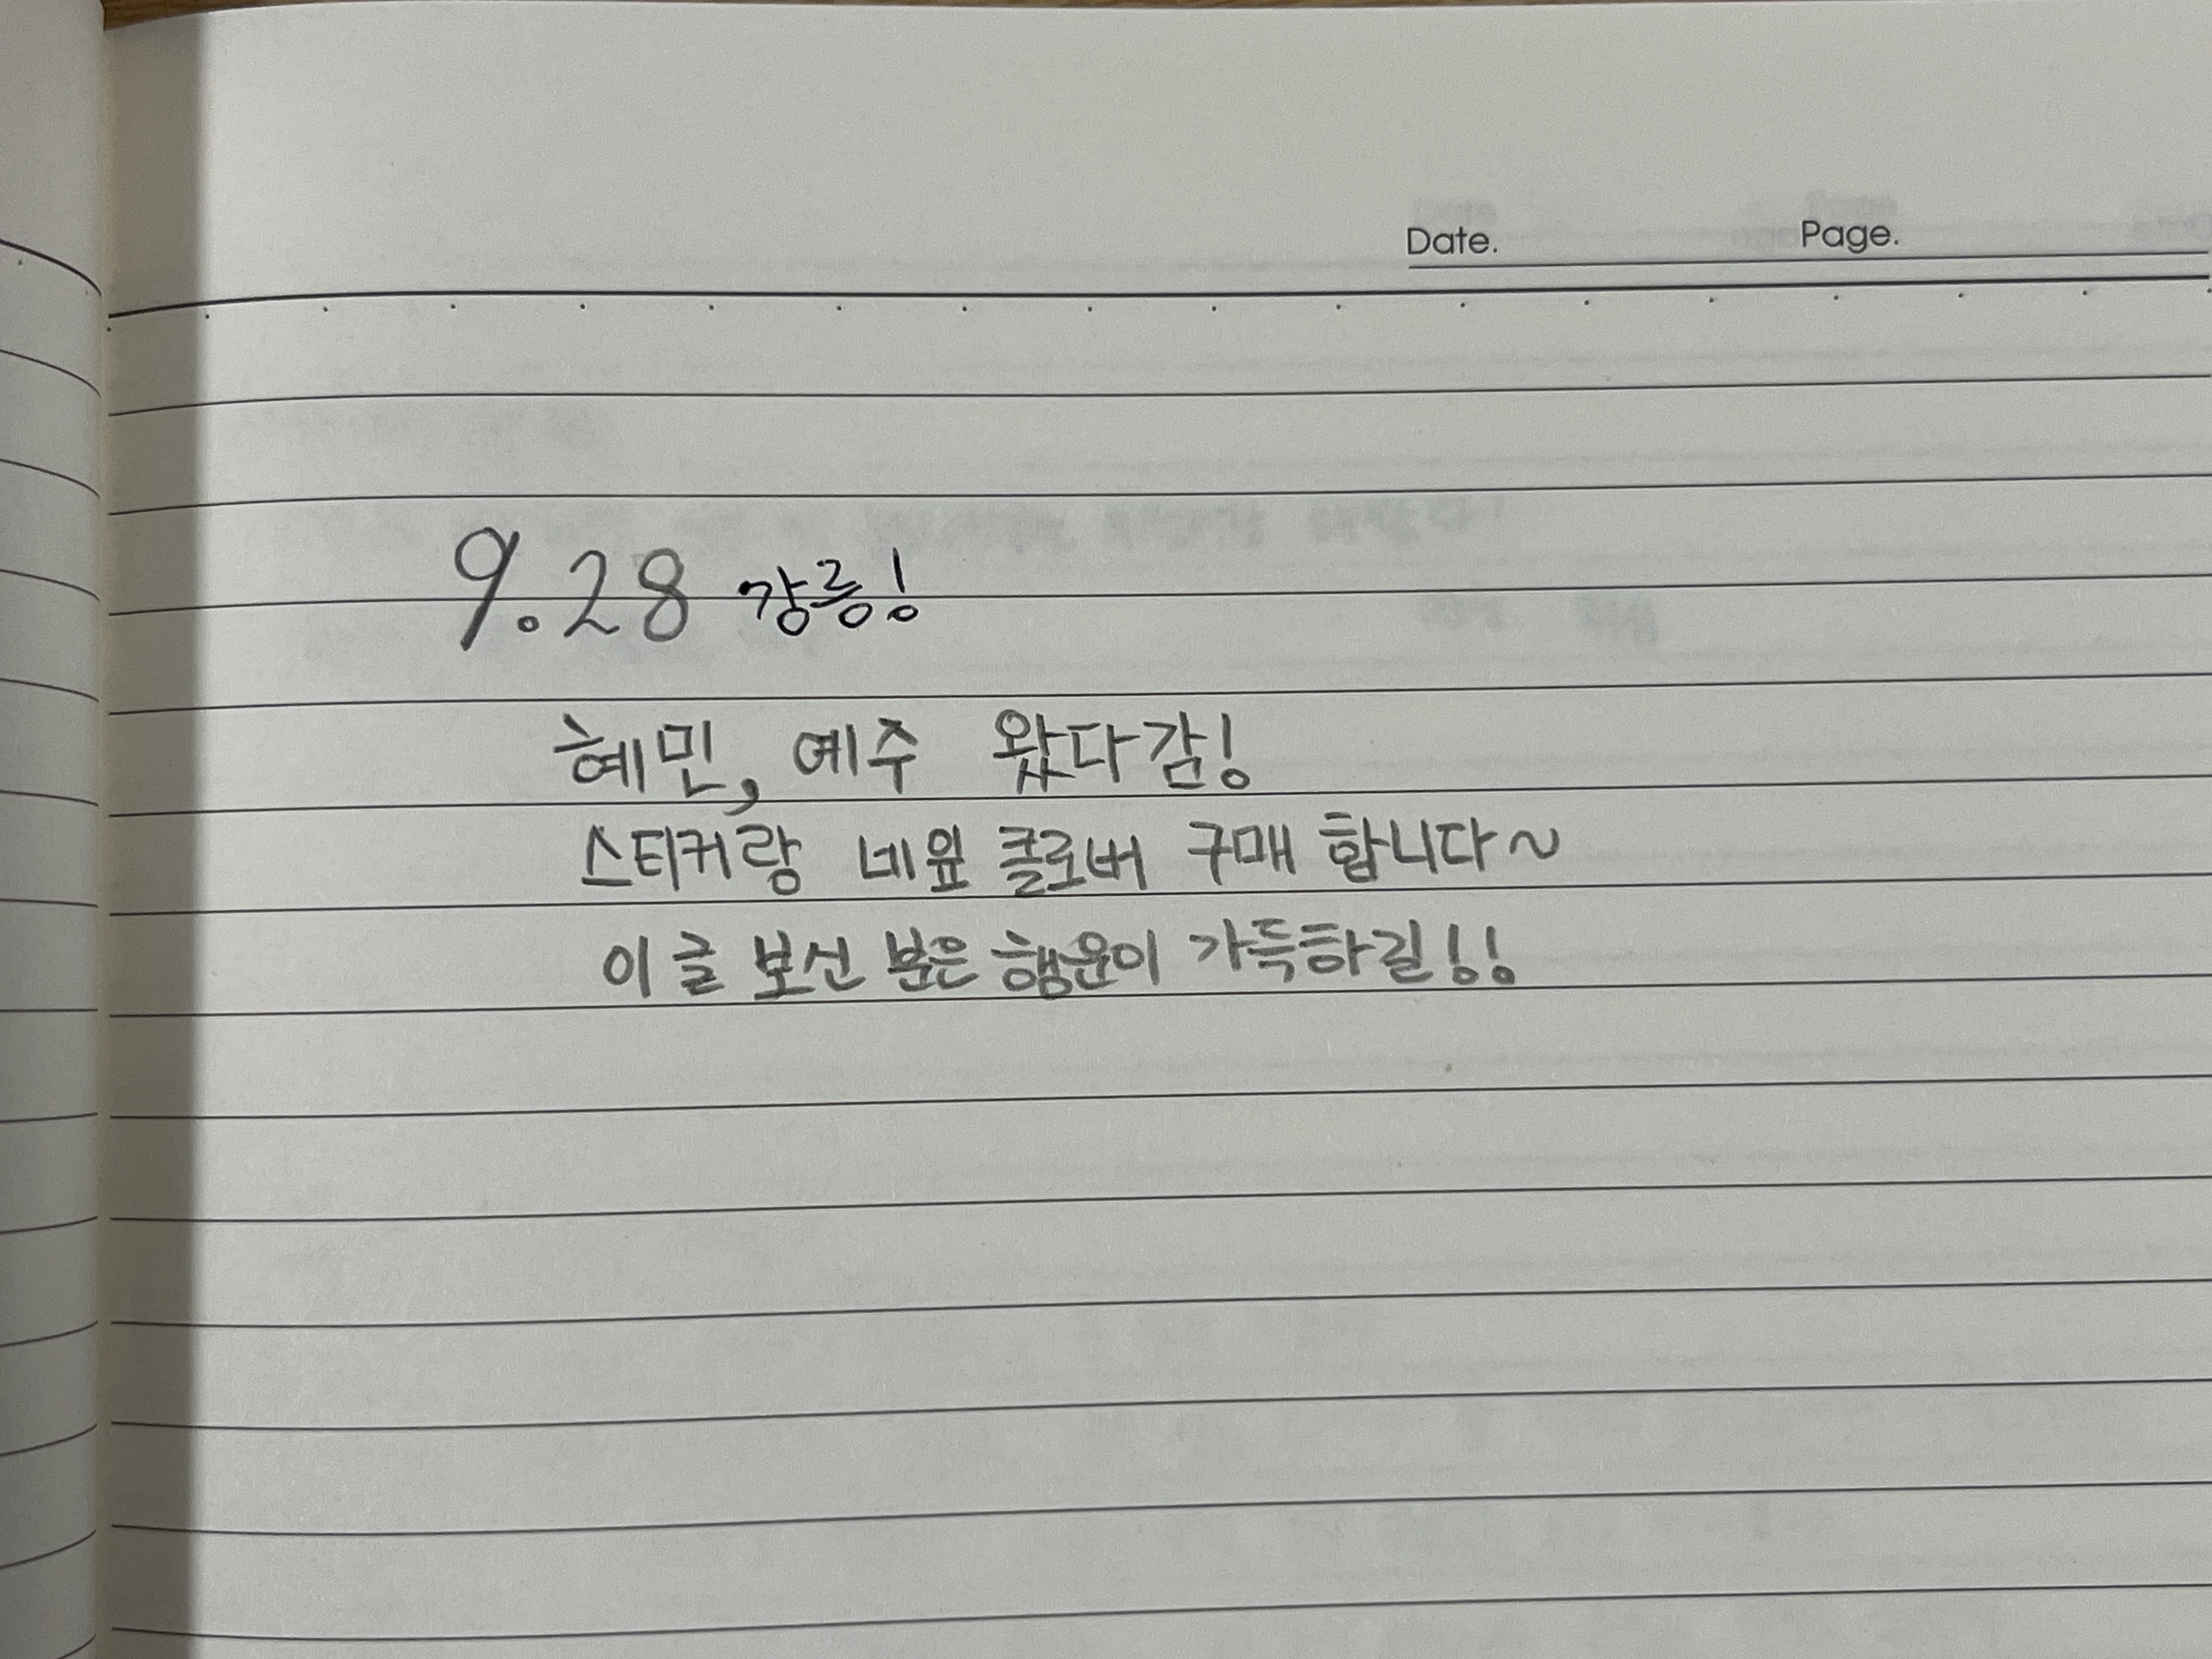 Date. Page.
9.28 강릉!
혜민, 예주 왔다감!
스티커랑 네잎 클로버 구매 합니다~
이 글 보신 분은 행운이 가득하길!!